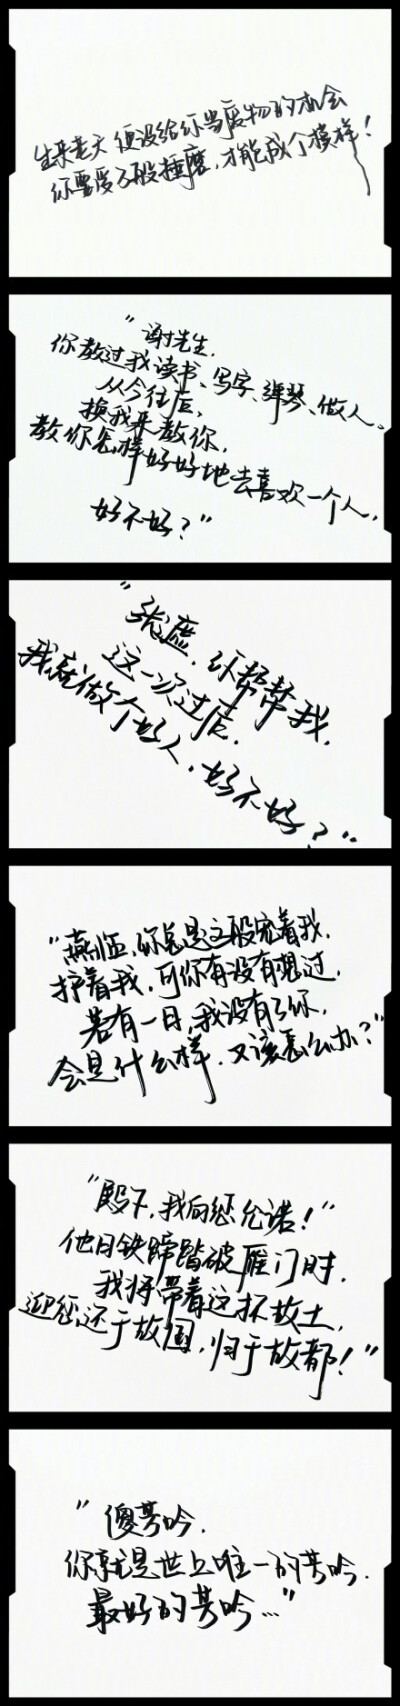 生来老天便没给你当废物的机会
你要受万般捶磨，才能成个模样！
"谢先生，
你教过我读书、写字、弹琴、做人。
从今往后，
换我来教你，
教你怎样好好地去喜欢一个人，
好不好？"
"张遮，你帮帮我，
这一次过后，
我就做个好人，好不好？"
"燕临，你总是这般宠着我，
护着我，可你有没有想过，
若有一日，我没有了你，
会是什么样，又该怎么办？"
"殿下，我向您允诺！"
他日铁蹄踏破雁门时，
我将带着这抔故土，
迎您还于故国，归于故都！"
"傻芳吟，
你就是世上唯一的芳吟，
最好的芳吟…"